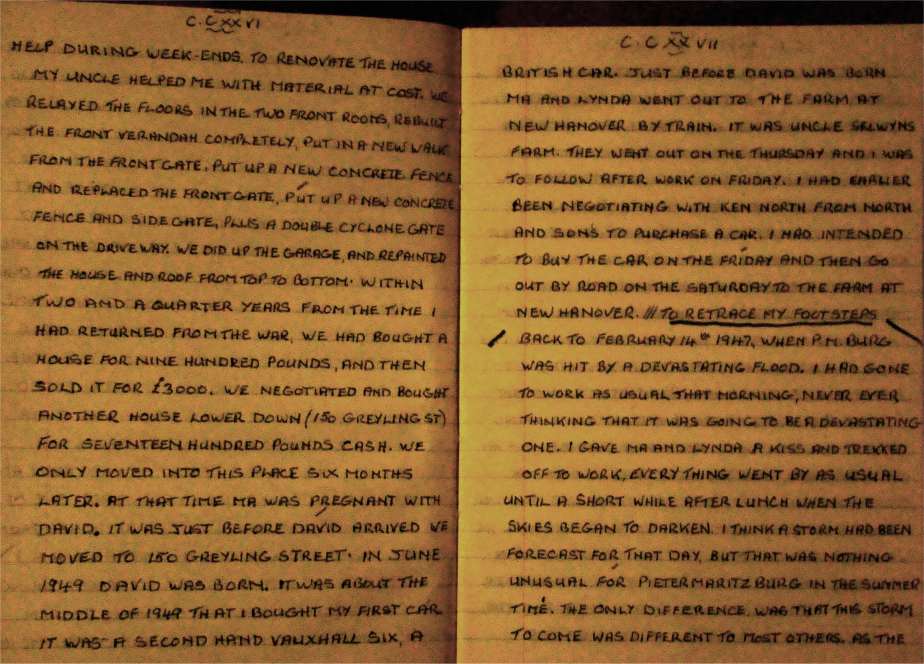 C.CXXVI
HELP DURING WEEK-ENDS. TO RENOVATE THE HOUSE
MY UNCLE HELPED ME WITH MATERIAL AT COST. WE
RELAYED THE FLOORS IN THE TWO FRONT ROOMS, REBUILT
THE FRONT VERANDAH COMPLETELY, PUT IN A NEW WALK
FROM THE FRONT GATE, PUT UP A NEW CONCRETE FENCE
AND REPLACED THE FRONT GATE, PUT UP A NEW CONCRETE
FENCE AND SIDE GATE, PLUS A DOUBLE CYCLONE GATE
ON THE DRIVEWAY. WE DID UP THE GARAGE, AND REPAINTED
THE HOUSE AND ROOF FROM TOP TO BOTTOM. WITHIN
TWO AND A QUARTER YEARS FROM THE TIME I
HAD RETURNED FROM THE WAR, WE HAD BOUGHT A
HOUSE FOR NINE HUNDRED POUNDS, AND THEN
SOLD IT FOR £3000. WE NEGOTIATED AND BOUGHT
ANOTHER HOUSE LOWER DOWN (150 GREYLING ST)
FOR SEVENTEEN HUNDRED POUNDS CASH. WE
ONLY MOVED INTO THIS PLACE SIX MONTHS
LATER. AT THAT TIME MA WAS PREGNANT WITH
DAVID. IT WAS JUST BEFORE DAVID ARRIVED WE
MOVED TO 150 GREYLING STREET. IN JUNE
1949 DAVID WAS BORN. IT WAS ABOUT THE
MIDDLE OF 1949 THAT I BOUGHT MY FIRST CAR
IT WAS A SECOND HAND VAUXHALL SIX, A
C.CXXVII
BRITISH CAR. JUST BEFORE DAVID WAS BORN
MA AND LYNDA WENT OUT TO THE FARM AT
NEW HANOVER BY TRAIN. IT WAS UNCLE SELWYNS
FARM. THEY WENT OUT ON THE THURSDAY AND I WAS
TO FOLLOW AFTER WORK ON FRIDAY. I HAD EARLIER
BEEN NEGOTIATING WITH KEN NORTH FROM NORTH
AND SON'S TO PURCHASE A CAR. I HAD INTENDED
TO BUY THE CAR ON THE FRIDAY AND THEN GO
OUT BY ROAD ON THE SATURDAY TO THE FARM AT
NEW HANOVER. /// TO RETRACE MY FOOTSTEPS
BACK TO FEBRUARY 14th 1947, WHEN P.M. BURG
WAS HIT BY A DEVASTATING FLOOD. I HAD GONE
TO WORK AS USUAL THAT MORNING, NEVER EVER
THINKING THAT IT WAS GOING TO BE A DEVASTATING
ONE. I GAVE MA AND LYNDA A KISS AND TREKKED
OFF TO WORK, EVERY THING WENT BY AS USUAL
UNTIL A SHORT WHILE AFTER LUNCH WHEN THE
SKIES BEGAN TO DARKEN. I THINK A STORM HAD BEEN
FORECAST FOR THAT DAY, BUT THAT WAS NOTHING
UNUSUAL FOR PIETERMARITZBURG IN THE SUMMER
TIME. THE ONLY DIFFERENCE, WAS THAT THIS STORM
TO COME WAS DIFFERENT TO MOST OTHERS. AS THE